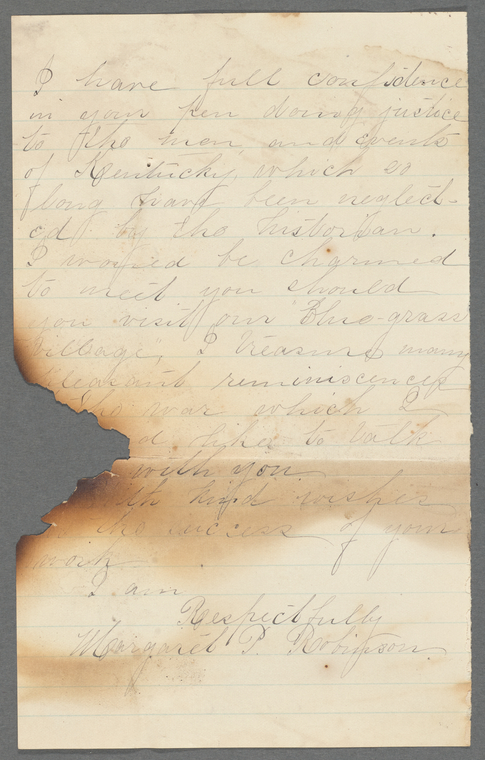 I have full confidence
in your pen doing justice
to the men, and events
of Kentucky, which so
long have been neglect-
ed by the historian.
I would be charmed
to meet you should
you visit our "Blue-grass
Village", I treasure many
pleasant reminiscences
the war which I
d like to talk
with you
with kind wishes
the success of your
work
I am
Respectfully
Margaret P. Robinson